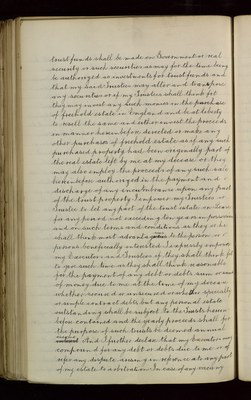 trust funds shall be made on Government or real
security or such securities as may for the time being
be authorized as investments for trust funds and
that my said Trustees may alter and transpose
any securities or if my Trustees shall think fit
they may invest any such moneys in the purchase
of freehold estate in England and Wales
to resell the same and either invest the proceeds
in manner hereinbefore directed or make any
other purchases of freehold estate as if any such
purchased property had been originally part of
the real estate left by me at my decease or they
may also employ the proceeds of any trust sale
hereinbefore authorized in the payment and
discharge of any encumbrance upon any part
of the trust property I empower my Trustees
to let any part of the trust estate on lease
for any period not exceeding ten years in possession
and on such terms and conditions as they or he
shall think most advantageous to the person or
persons beneficially interested I expressly empower
my Executors and Trustees if they shall think fit
to give such time as they shall think reasonable
for the payment of any debt or debts sum or sums
of money due to me at the time of my decease
whether secured or unsecured or whether specialty
or simple contract debts but any personal estate
outstanding shall be subject to the trusts herein
before contained and the yearly proceeds shall for
the purpose of such trusts be deemed annual
And I further declare that my Executors may
compound for any debt or debts due to me or
refer any dispute arising in reference to any part
of my estate to arbitration In case of any such my